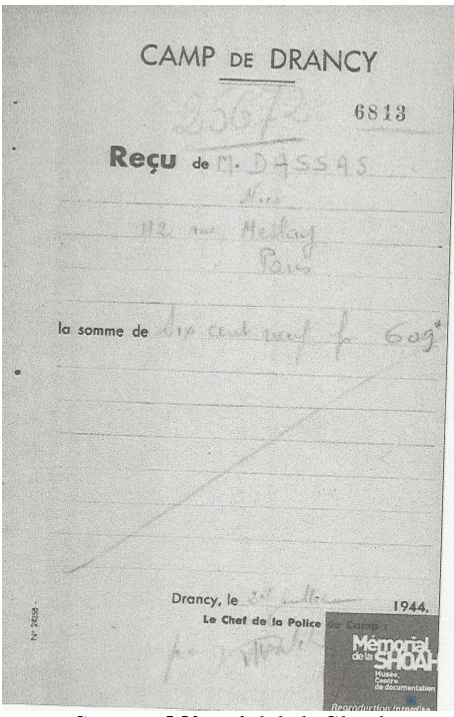 CAMP DE DRANCY
25672
6813
Reçu de M. DASSAS
42 rue Meslay
Paris
la somme de Six cent neuf f 609
Drancy, le 24 juillet 1944.
Le Chef de la Police du Camp :
N° 24258 -
Mémorial
de la SHOAH
Musée,
Centre
de documentation
Reproduction interdite